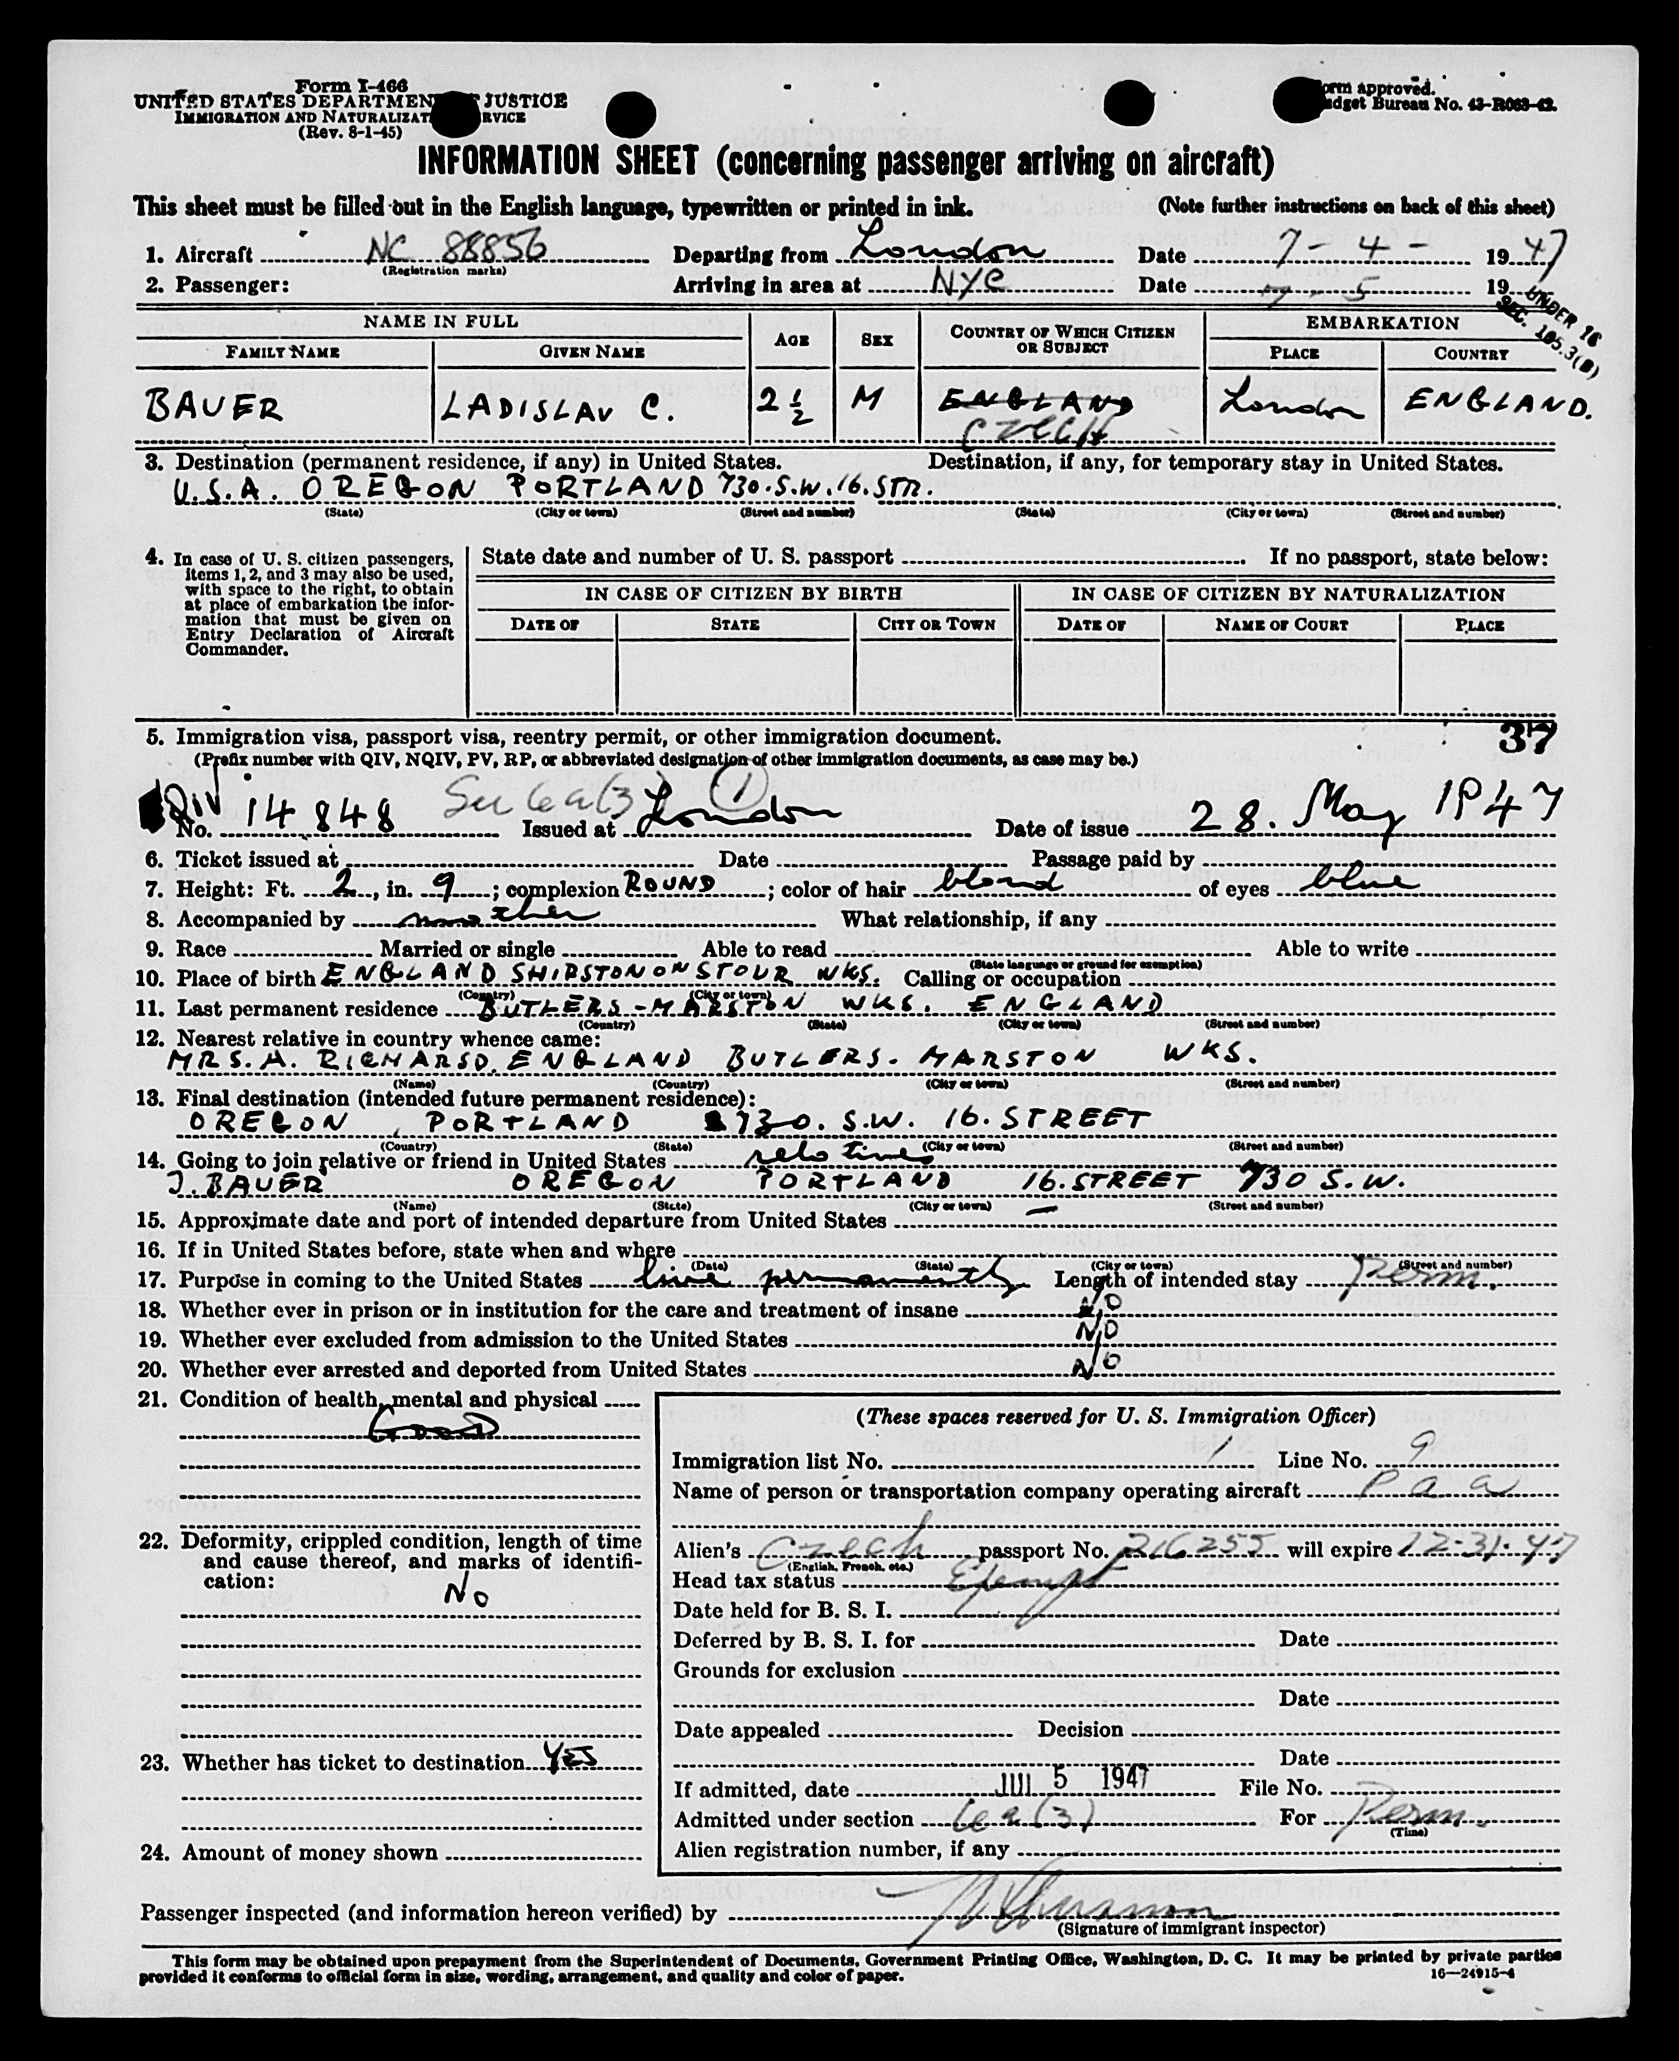 Form I-466
UNITED STATES DEPARTMENT JUSTICE
IMMIGRATION AND NATURALIZAT RVICE
(Rev. 8-1-45)
orm approved.
dget Bureau No. 43-R063-42.
INFORMATION SHEET (concerning passenger arriving on aircraft)
This sheet must be filled out in the English language, typewritten or printed in ink. (Note further instructions on back of this sheet)
1. Aircraft NC 88856 Departing from London Date 7-4- 1947
(Registration marks)
2. Passenger: Arriving in area at NYC Date 7-5 19
UNDER 16
SEC. 105.3(B)
NAME IN FULL AGE SEX COUNTRY OF WHICH CITIZEN OR SUBJECT EMBARKATION
FAMILY NAME GIVEN NAME PLACE COUNTRY
BAUER LADISLAV C. 2 1/2 M ENGLAND London ENGLAND.
CZECH
3. Destination (permanent residence, if any) in United States. Destination, if any, for temporary stay in United States.
U.S.A. OREGON PORTLAND 730.S.W.16.STR.
(State) (City or town) (Street and number) (State) (City or town) (Street and number)
4. In case of U. S. citizen passengers, items 1, 2, and 3 may also be used, with space to the right, to obtain at place of embarkation the information that must be given on Entry Declaration of Aircraft Commander.
State date and number of U. S. passport If no passport, state below:
IN CASE OF CITIZEN BY BIRTH IN CASE OF CITIZEN BY NATURALIZATION
DATE OF STATE CITY OR TOWN DATE OF NAME OF COURT PLACE
37
5. Immigration visa, passport visa, reentry permit, or other immigration document.
(Prefix number with QIV, NQIV, PV, RP, or abbreviated designation of other immigration documents, as case may be.)
Sec 6a(3) 1
QIV No. 14848 Issued at London Date of issue 28. May 1947
6. Ticket issued at Date Passage paid by
7. Height: Ft. 2, in. 9; complexion ROUND; color of hair blond of eyes blue
8. Accompanied by mother What relationship, if any
9. Race Married or single Able to read Able to write
(State language or ground for exemption)
10. Place of birth ENGLAND SHIPSTON ON STOUR WKS. Calling or occupation
(Country) (City or town)
11. Last permanent residence BUTLERS-MARSTON WKS. ENGLAND
(Country) (State) (City or town) (Street and number)
12. Nearest relative in country whence came:
MRS. A. RICHARSD. ENGLAND BUTLERS-MARSTON WKS.
(Name) (Country) (City or town) (Street and number)
13. Final destination (intended future permanent residence):
OREGON, PORTLAND 730. S.W. 16. STREET
(Country) (State) (City or town) (Street and number)
14. Going to join relative or friend in United States relatives
J. BAUER OREGON PORTLAND 16. STREET 730 S.W.
(Name) (State) (City or town) (Street and number)
15. Approximate date and port of intended departure from United States —
16. If in United States before, state when and where
(Date) (State) (City or town) (Street and number)
17. Purpose in coming to the United States live permanently Length of intended stay Perm.
18. Whether ever in prison or in institution for the care and treatment of insane NO
19. Whether ever excluded from admission to the United States NO
20. Whether ever arrested and deported from United States NO
21. Condition of health, mental and physical
Good
22. Deformity, crippled condition, length of time and cause thereof, and marks of identification:
No
23. Whether has ticket to destination YES
24. Amount of money shown
(These spaces reserved for U. S. Immigration Officer)
Immigration list No. 1 Line No. 9
Name of person or transportation company operating aircraft P a a
Alien's Czech passport No. 216255 will expire 12-31-47
(English, French, etc.)
Head tax status Exempt
Date held for B. S. I.
Deferred by B. S. I. for Date
Grounds for exclusion
Date
Date appealed Decision
Date
If admitted, date JUL 5 1947 File No.
Admitted under section 6a(3) For Perm.
(Time)
Alien registration number, if any
Passenger inspected (and information hereon verified) by
(Signature of immigrant inspector)
This form may be obtained upon prepayment from the Superintendent of Documents, Government Printing Office, Washington, D. C. It may be printed by private parties
provided it conforms to official form in size, wording, arrangement, and quality and color of paper.
16—24915-4